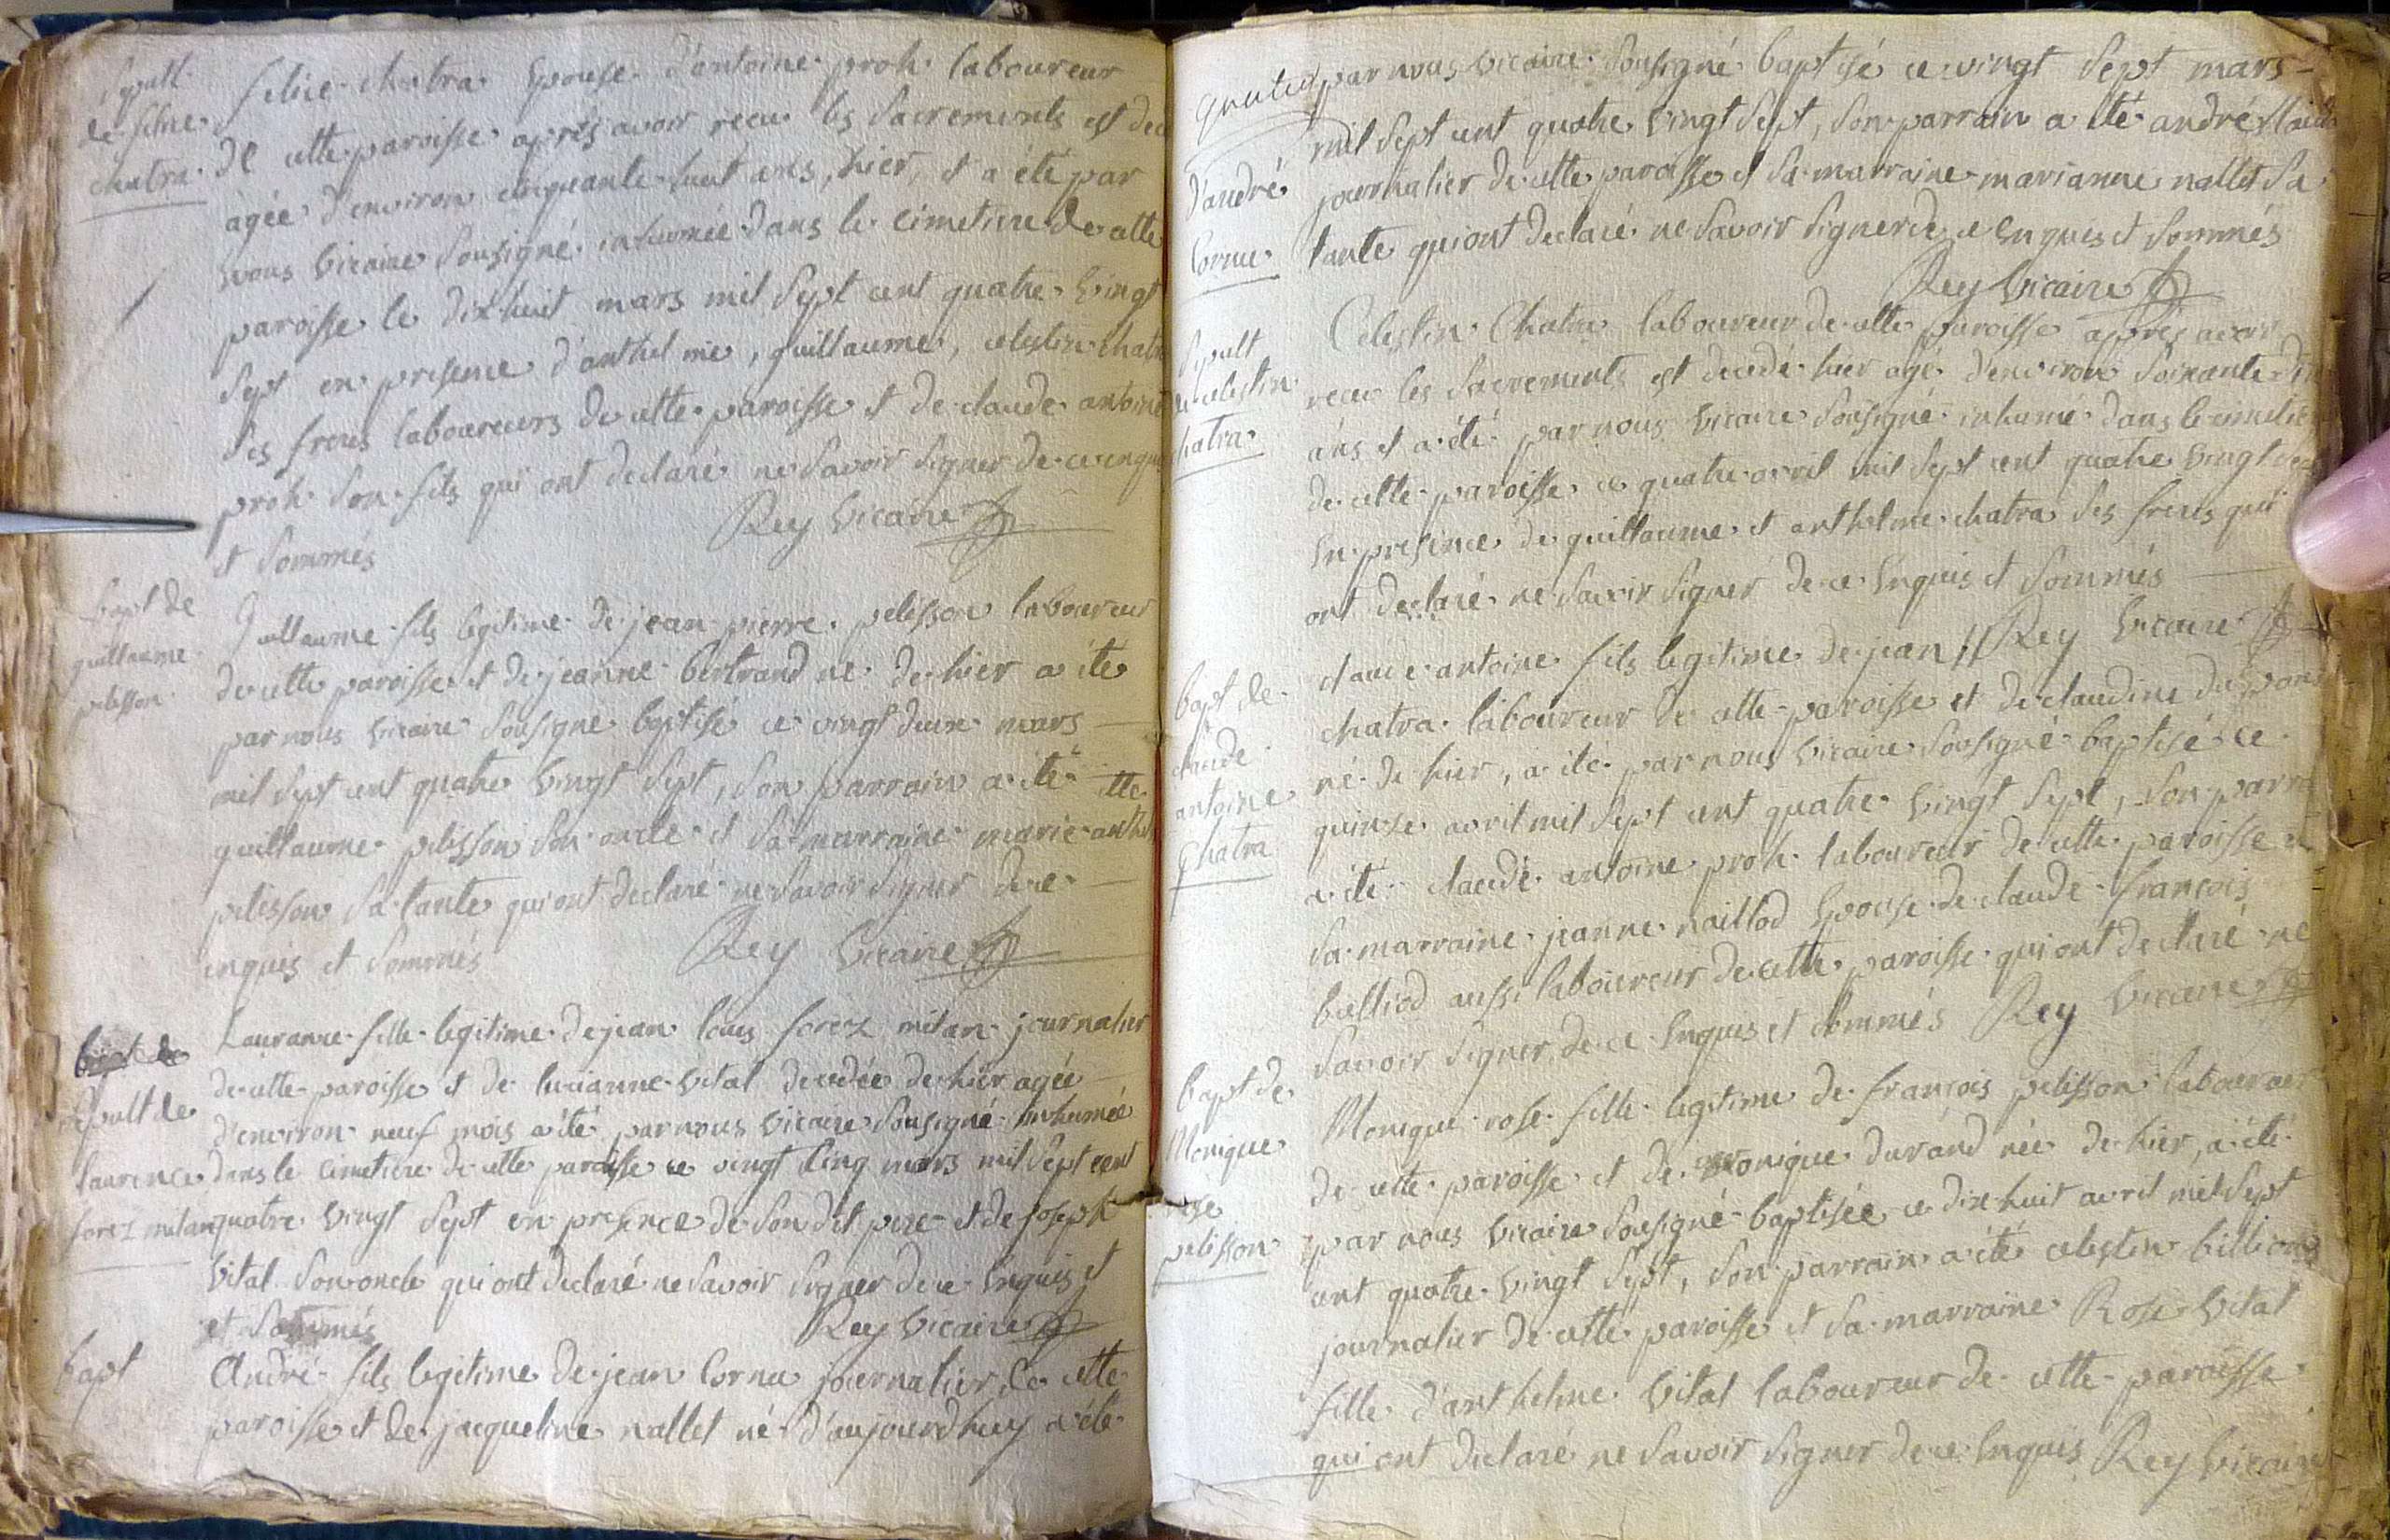 Sepult
de felicie
chatra
felicie chatra Epouse d'antoine proh laboureur
de cette paroisse après avoir recu les Sacrements est
agée d'environ cinquante huit ans, hier, et a été par
nous vicaire Sousigné inhumée dans le cimetiere de cette
paroisse le dix huit mars mil Sept cent quatre vingt
Sept en presence d'anthelme, guillaume, celestin
Ses freres laboureurs de cette paroisse et de claude antoine
proh Son fils qui ont declaré ne Savoir Signer de ce
et Sommés
Rey vicaire
bapt de
guillaume
pelisson
Guillaume fils legitime de jean pierre pelisson laboureur
de cette paroisse et de jeanne bertrand né de hier a été
par nous vicaire Sousigné baptisé ce vingt deux mars
mil Sept cent quatre vingt Sept, Son parrain a été
guillaume pelisson Son oncle et Sa marraine marie
pelisson Sa tante qui ont declaré ne Savoir Signer de ce
enquis et Sommés
Rey vicaire
Sepult de
laurence
forez milan
Lauranne fille legitime de jean louis forez milan journalier
de cette paroisse et de lucianne vital decedée de hier agée
d'environ neuf mois a été par nous vicaire Sousigné inhumée
dans le cimetiere de cette paroisse ce vingt cinq mars mil Sept cent
quatre vingt Sept en presence de Son dit pere et de joseph
vital Son oncle qui ont declaré ne Savoir Signer de ce Enquis et
et Sommés
Rey vicaire
bapt
André fils legitime de jean Cornu journalier de cette
paroisse et de jacqueline nallet né d'aujourdhuy a été
d'andré
Cornu
par nous vicaire Sousigné baptisé ce vingt Sept mars
mil Sept cent quatre vingt Sept, Son parrain a été andré
journalier de cette paroisse et Sa marraine marianne nallet Sa
tante qui ont declaré ne Savoir Signer de ce Enquis et Sommés
Rey vicaire
Sepult
de celestin
chatra
Celestin Chatra laboureur de cette paroisse après avoir
recu les Sacrements est decedé hier agé d'environ Soixante
ans et a été par nous vicaire Sousigné inhumé dans le
de cette paroisse ce quatre avril mil Sept cent quatre vingt
En presence de guillaume et anthelme chatra Ses freres qui
ont declaré ne Savoir Signer de ce Enquis et Sommés
Rey vicaire
bapt de
claude
antoine
Chatra
claude antoine fils legitime de jean
chatra laboureur de cette paroisse et de claudine
né de hier, a été par nous vicaire Sousigné baptisé ce
quinze avril mil Sept cent quatre vingt Sept, Son
a été claude antoine proh laboureur de cette paroisse et
Sa marraine jeanne naillod Epouse de claude françois
balliod aussi laboureur de cette paroisse qui ont declaré ne
Savoir Signer de ce Enquis et Sommés Rey vicaire
bapt de
Monique
rose
pelisson
Monique rose fille legitime de françois pelisson laboureur
de cette paroisse et de monique durand née de hier, a été
par nous vicaire Sousigné baptisée ce dix huit avril mil Sept
cent quatre vingt Sept, Son parrain a été celestin
journalier de cette paroisse et Sa marraine Rose vital
fille d'anthelme vital laboureur de cette paroisse
qui ont declaré ne Savoir Signer de ce Enquis Rey vicaire